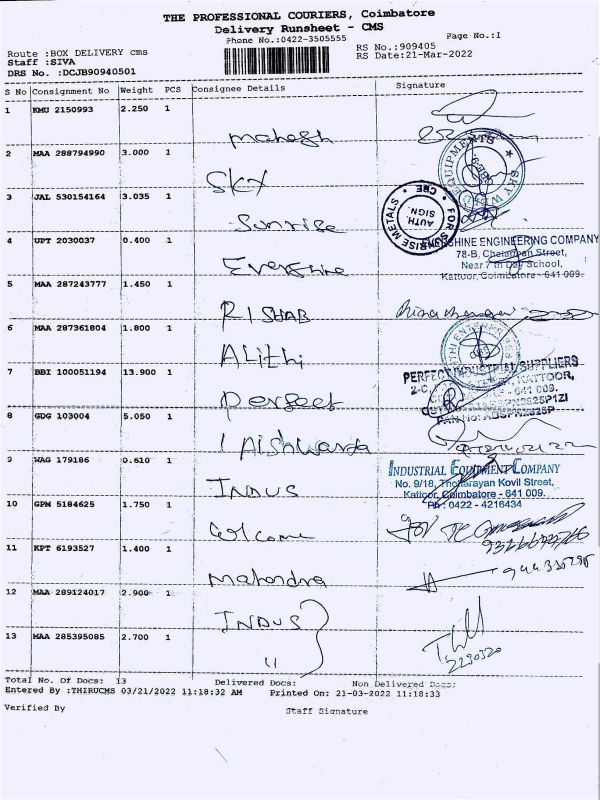 THE PROFESSIONAL COURIERS, Coimbatore
Delivery Runsheet - CMS
Phone No.:0422-3505555
Page No.:1
Route :BOX DELIVERY cms
RS No.:909405
Staff :SIVA
RS Date:21-Mar-2022
DRS No. :DCJB90940501
S No Consignment No Weight PCS Consignee Details Signature
1 KMU 2150993 2.250 1
Mahesh
2 MAA 288794990 3.000 1
SKY
3 JAL 530154164 3.035 1
Sunrise
4 UPT 2030037 0.400 1
Evershine
5 MAA 287243777 1.450 1
RISHAB
6 MAA 287361804 1.800 1
Alithi
7 BBI 100051194 13.900 1
Perfect
8 GDG 103004 5.050 1
Aishwarya
9 WAG 179186 0.610 1
INDUS
10 GPM 5184625 1.750 1
Welcome
11 KPT 6193527 1.400 1
Mahendra
12 MAA 289124017 2.900 1
INDUS
13 MAA 285395085 2.700 1
"
EQUIPMENTS
SKY
FOR SUNRISE METALS
CBE
AUTH.
SIGN.
EVERSHINE ENGINEERING COMPANY
78-B, Chelappan Street,
Near 7 th Day School,
Kattoor, Coimbatore - 641 009.
PERFECT INDUSTRIAL SUPPLIERS
KATTOOR,
641 009.
INDUSTRIAL EQUIPMENT COMPANY
No. 9/18, Thottarayan Kovil Street,
Kattoor, Coimbatore - 641 009.
Ph : 0422 - 4216434
Total No. Of Docs: 13
Delivered Docs:
Non Delivered Docs:
Entered By :THIRUCMS 03/21/2022 11:18:32 AM
Printed On: 21-03-2022 11:18:33
Verified By
Staff Signature